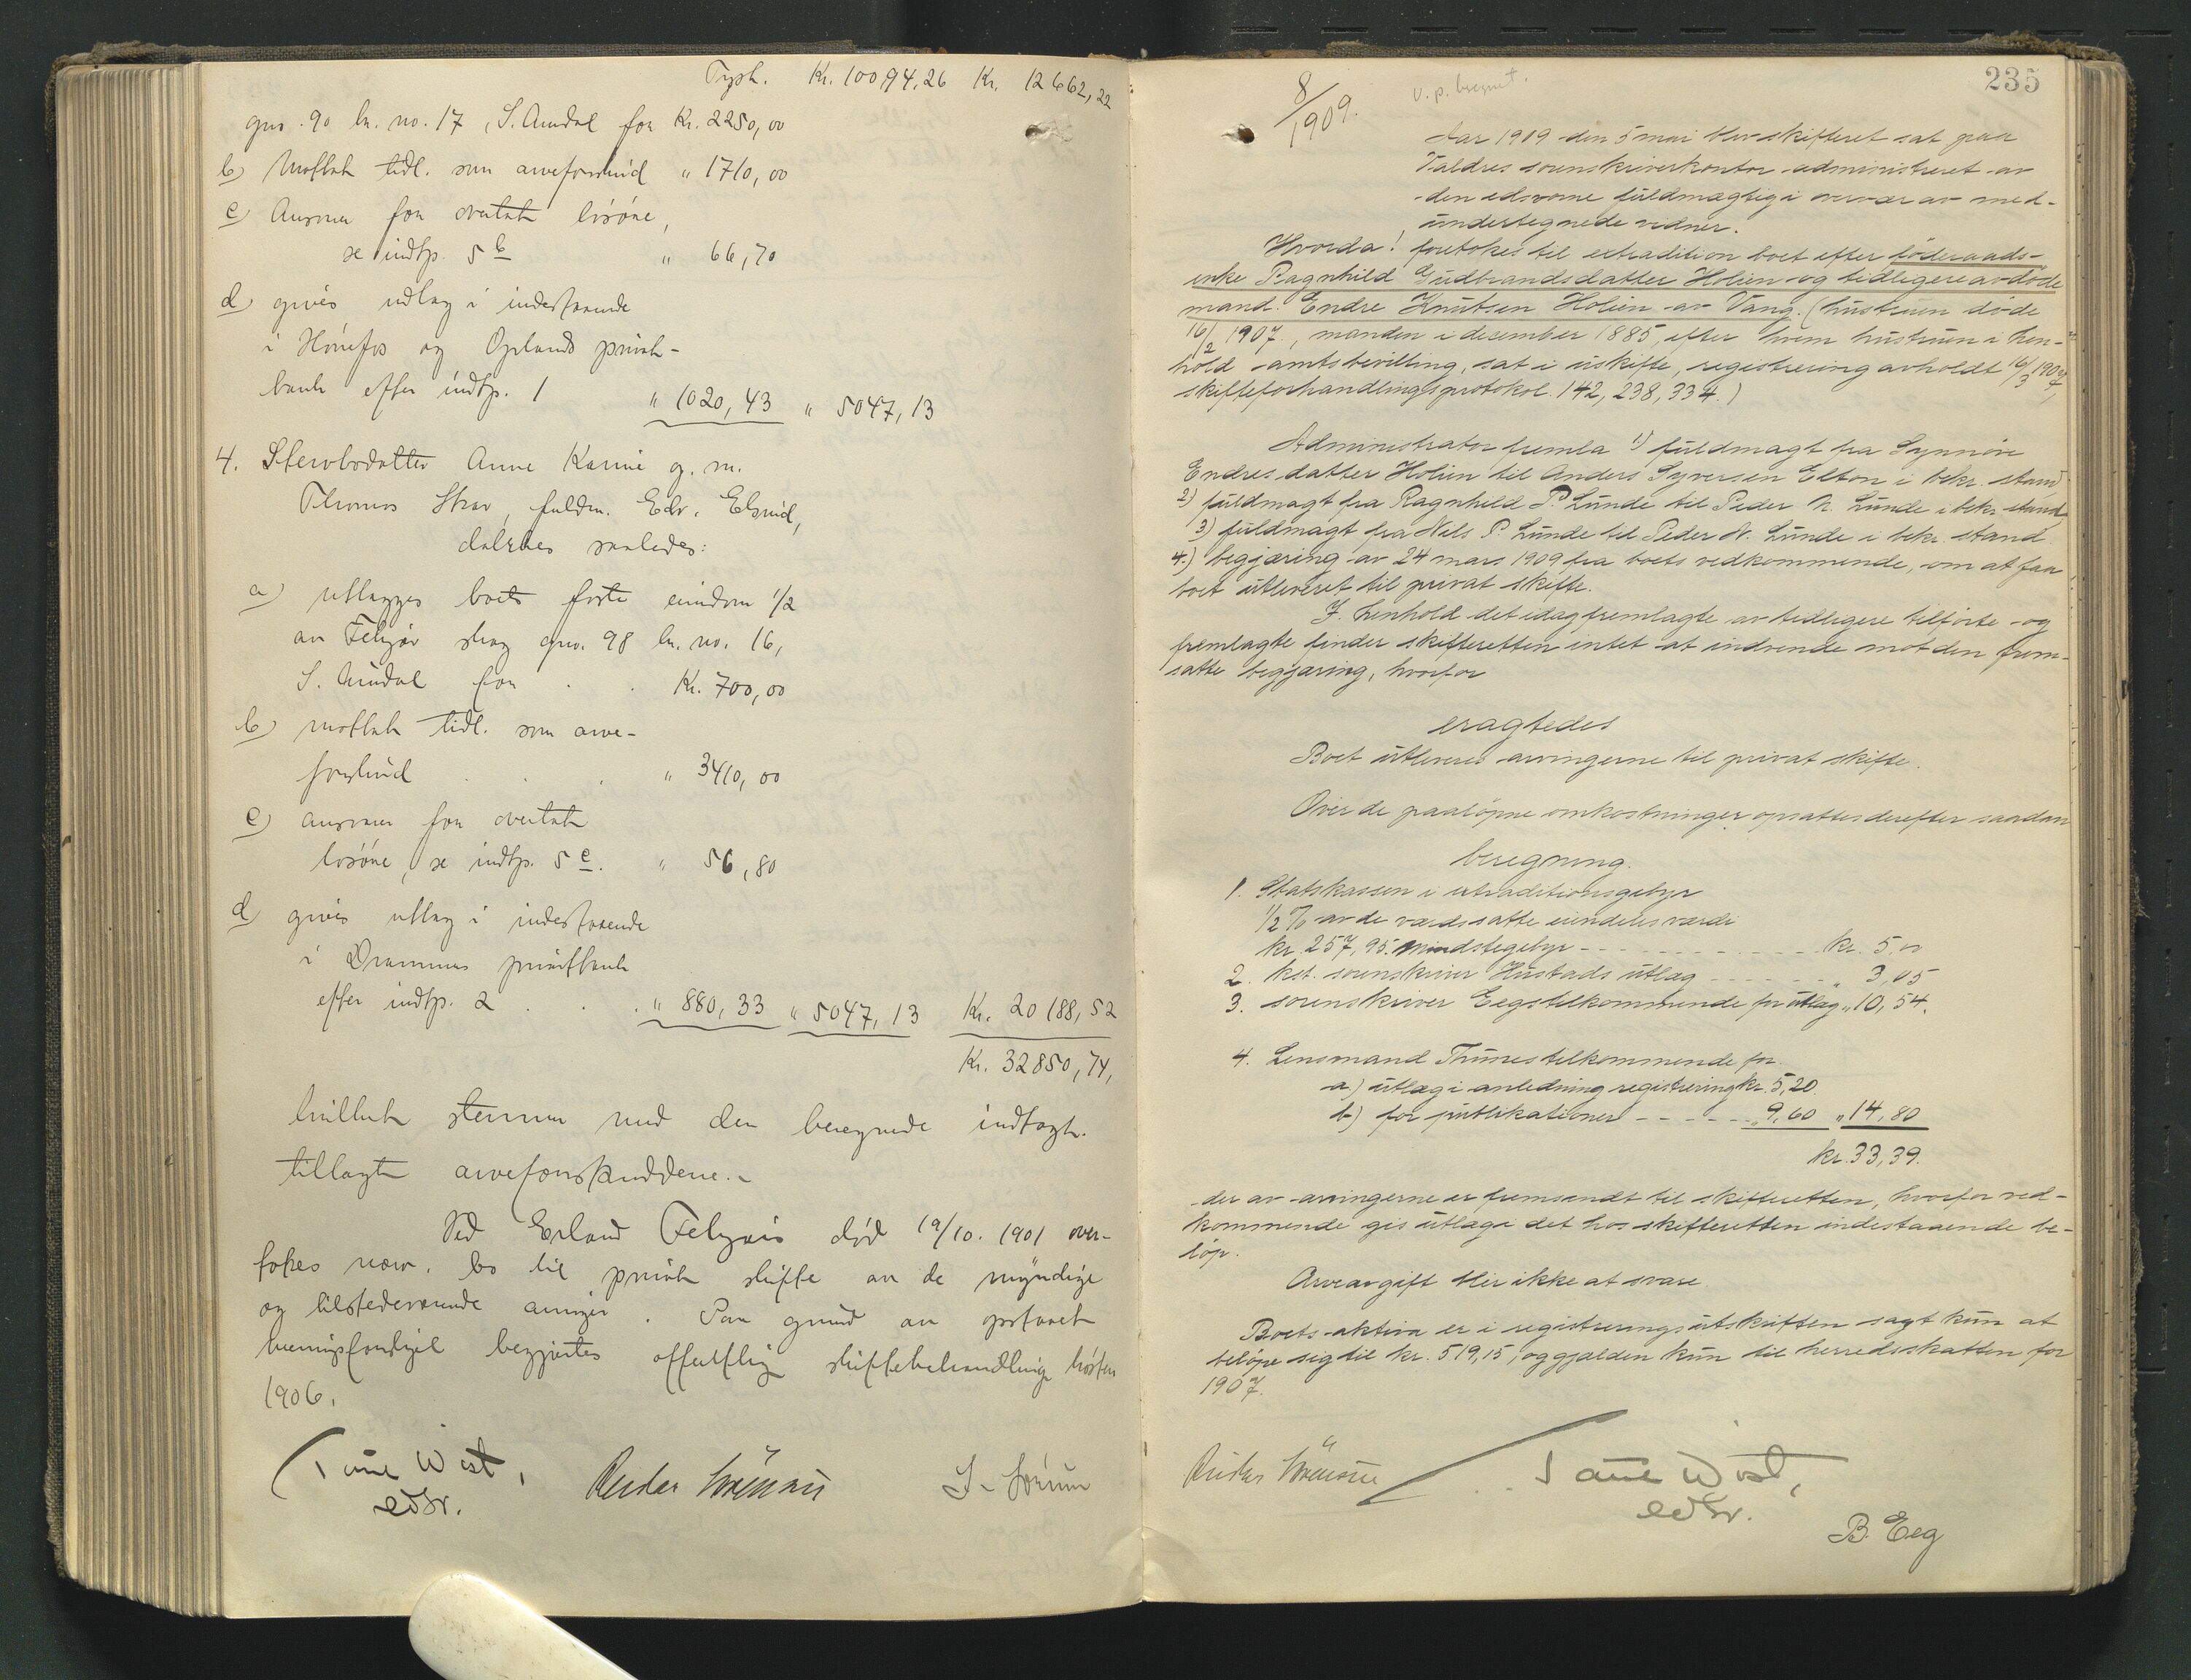 Kr. 10094,26 Kr. 12662,22
gno. 90 br. no. 17, S. Aurdal for Kr. 2250,00
b) Mottat tidl. som arveforskud " 1710,00
c) Ansvar for overtat løsøre,
se indtp. 5 b " 66,70
d) gives utlag i indestaaende
i Hønefos og Oplands privat-
bank efter indtp. 1 " 1020,43 " 5047,13
4. Stervbodatter Anne Karine g. m.
Thomas fuldm. Edv.
deles saaledes:
a) utlægges boets faste eiendom 1/2
av Felgjær gno. 98 br. no. 16,
S. Aurdal for . . Kr. 700,00
b) mottat tidl. som arve-
forskud . . . " 3410,00
c) ansvar for overtat
løsøre, se indtp. 5 c. " 56,80
d) gives utlag i indestaaende
i Drammens privatbank
efter indtp. 2 . . . " 880,33 " 5047,13 Kr. 20188,52
Kr. 32850,74,
hvilket stemmer med den beregnede indtægt.
tillagt arveforskuddene.-
Ved Erland død 19/10. 1901 over-
tokes nærv. bo til privat skifte av de myndige
og tilstedeværende arvinger. Paa grund av opstaaet
meningsforskjel begjærtes offentlig skiftebehandling høsten
1906.
West,
edsv.
235
8/1909. v. p. beregnet.
Aar 1909 den 5 mai blev skifteret sat paa
Valdres sorenskriverkontor administreret av
den edsvorne fuldmægtig i overvær av med-
undertegnede vidner.
Hvorda! foretokes til extradition boet efter föderaads-
enke Ragnhild Gudbrandsdatter Holien og tidligere avdöde
mand Endre Knutsen Holien av Vang. (hustruen döde
16/2 1907, manden i december 1885, efter hvem hustruen i hen-
hold amtsbevilling, sat i uskifte, registrering avholdt 16/3 1907,
skifteforhandlingsprotokol 142, 238, 334.)
Administrator fremla 1) fuldmagt fra Synnöve
Endresdatter Holien til Anders Syversen Elton i bekr. stand
2) fuldmagt fra Ragnhild P. Lunde til Peder N. Lunde i bekr. stand
3) fuldmagt fra Nels P. Lunde til Peder N. Lunde i bekr. stand
4.) begjæring av 24 mars 1909 fra boets vedkommende, om at faa
boet utleveret til privat skifte.
I henhold det idag fremlagte av tidligere tilförte og
fremlagte finder skifteretten intet at indvende mot den frem-
satte begjæring, hvorfor
eragtedes
Boet utleveres arvingerne til privat skifte.
Over de paalöpne omkostninger opsattes derefter saadan
beregning.
1. Statskassen i extraditionsgebyr
1/2 % av de værdsatte eiendeles værdi
kr. 257,95 mindstegebyr - - - - - - - - kr. 5,00
2. kst. sorenskriver Hustads utlæg - - - - - " 3,05
3. sorenskriver Eegs tilkommende for utlæg " 10,54.
4. Lensmand Thunes tilkommende for
a.) utlæg i anledning registrering kr. 5,20
b.) for publikationer - - - - - - " 9,60 " 14,80
kr. 33,39.
der av arvingerne er fremsendt til skifteretten, hvorfor ved-
kommende gis utlæg i det hos skifteretten indestaaende be-
löp.
Arveavgift blir ikke at svare.
Boets aktiva er i registreringsutskriften sagt kun at
belöpe sig til kr. 519,15, og gjælden kun til herredsskatten for
1907.
West,
edsv.
B. Eeg